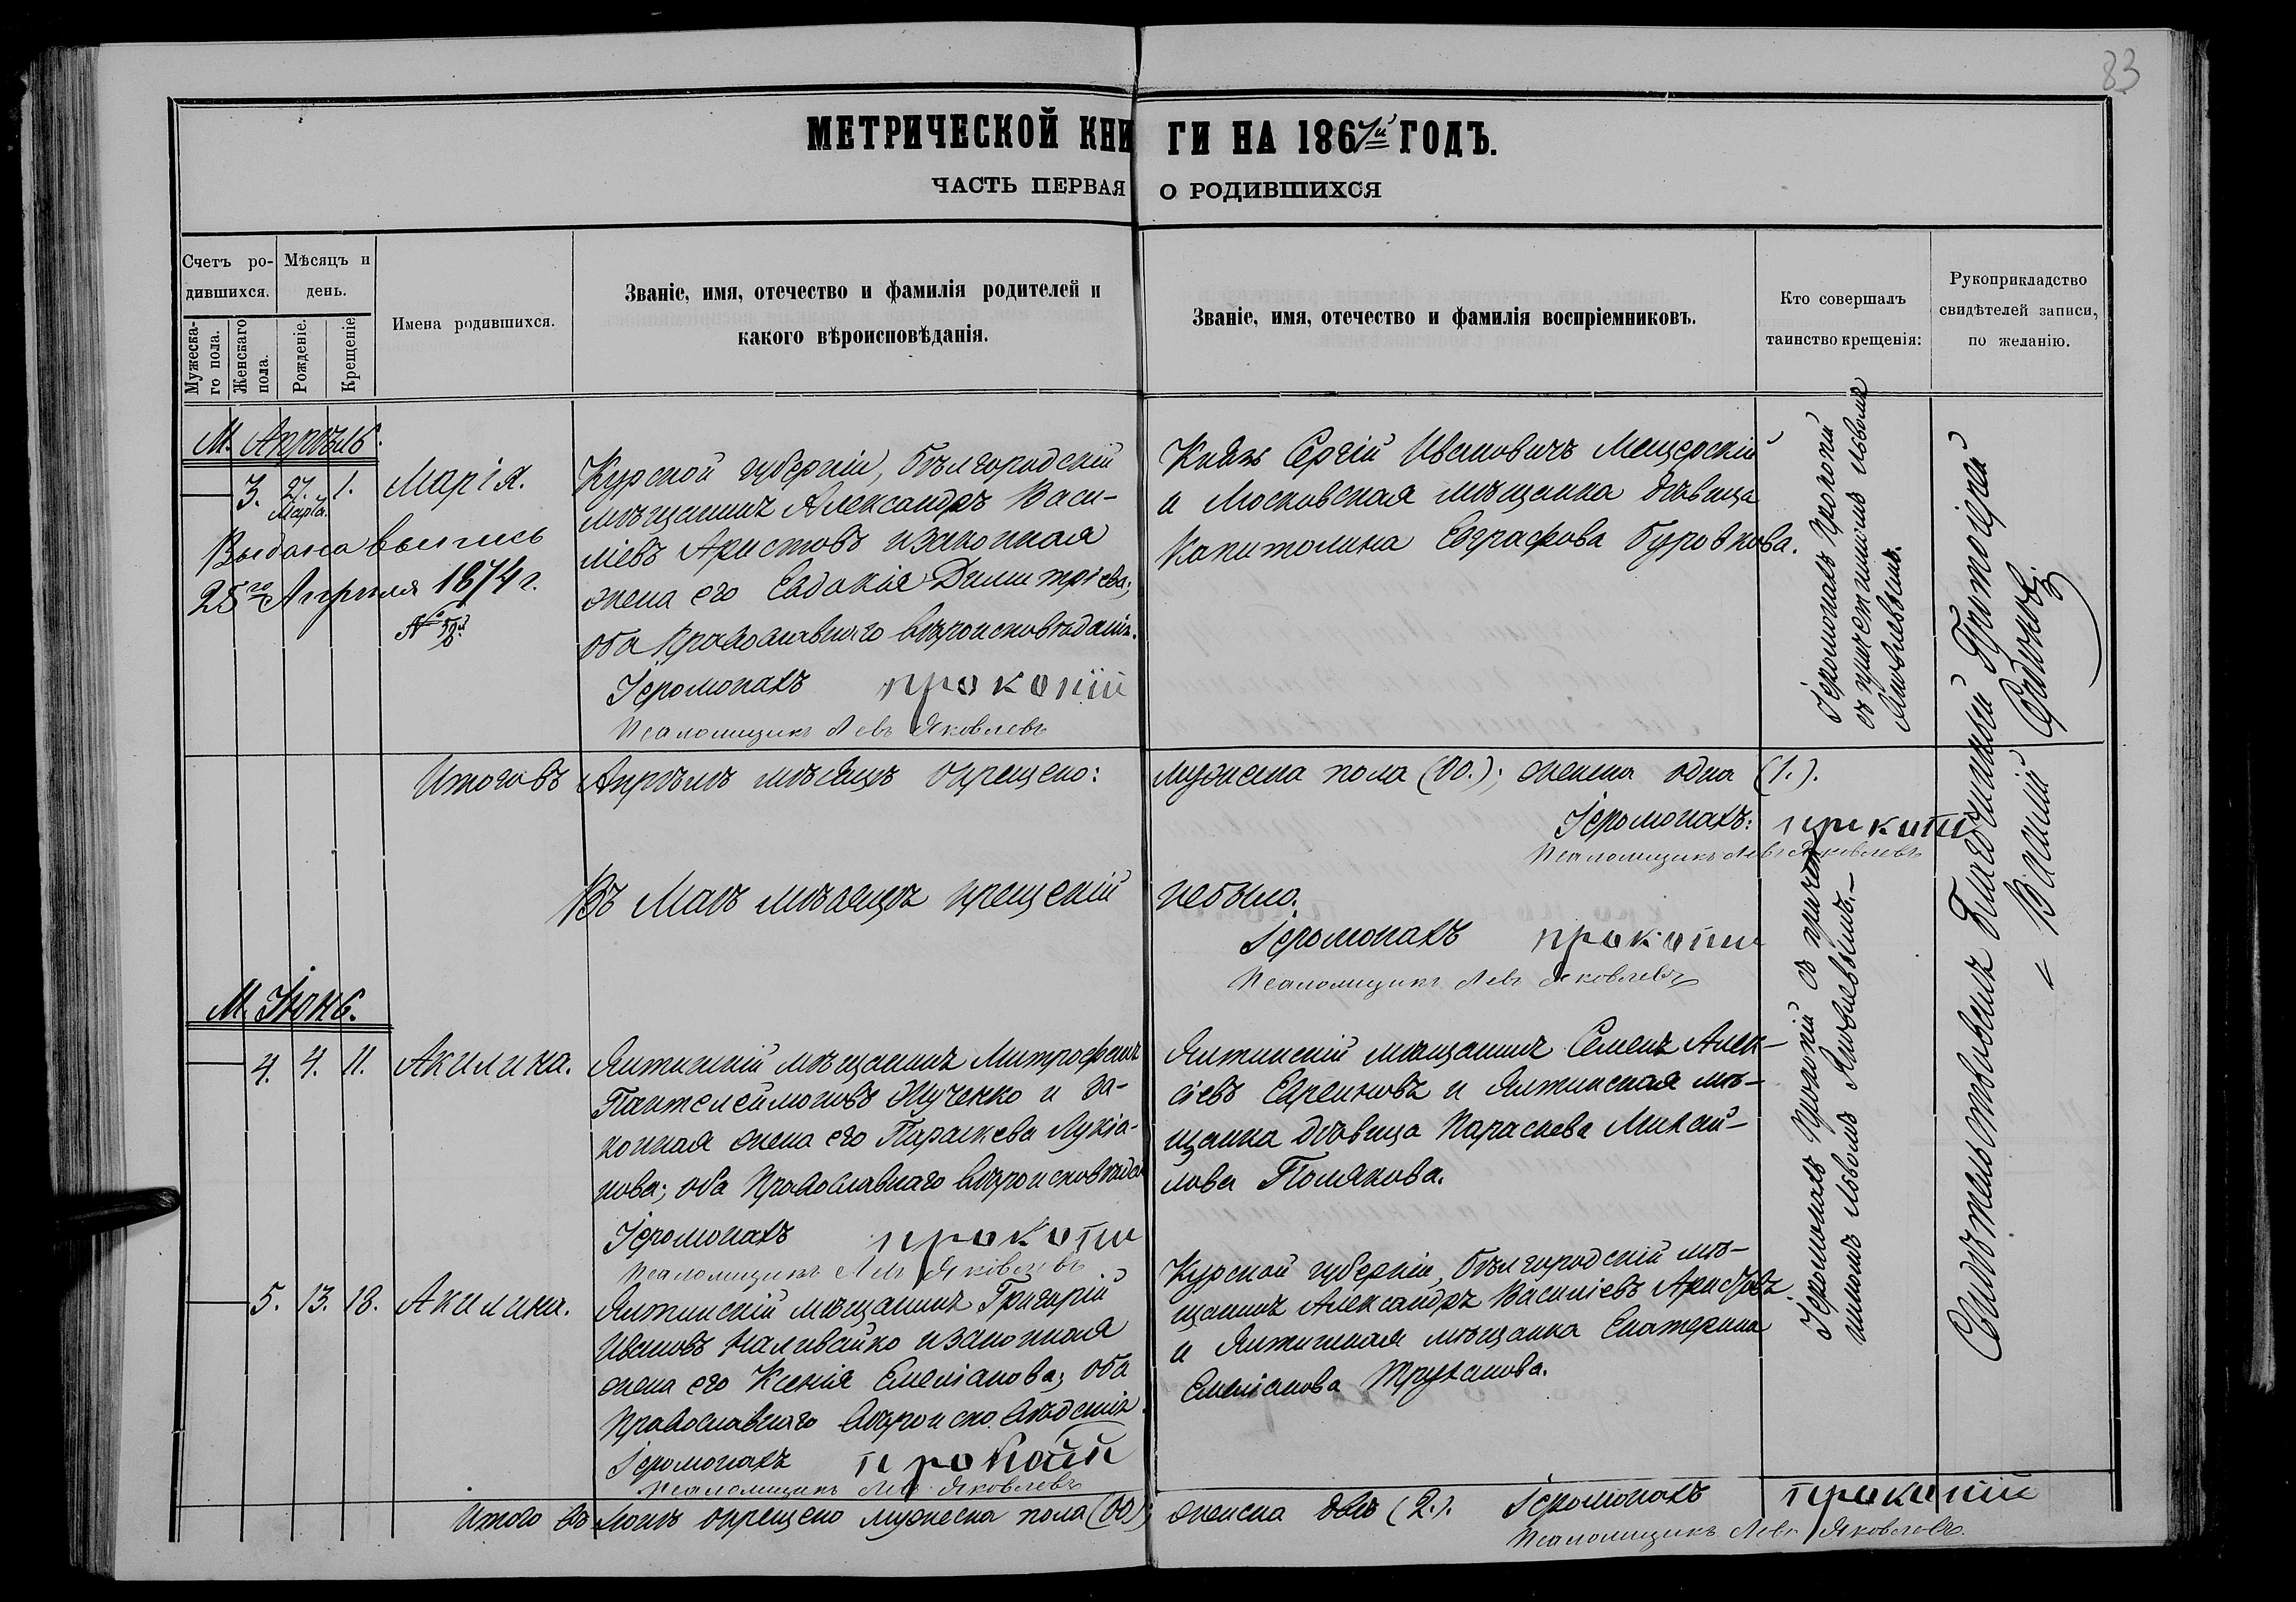 83
МЕТРИЧЕСКОЙ КНИГИ НА 1867й ГОДЪ.
ЧАСТЬ ПЕРВАЯ О РОДИВШИХСЯ
Счетъ ро-
дившихся.
Мужеска-
го пола.
Женскаго
пола.
Мѣсяцъ и
день.
Рожденіе.
Крещеніе.
Имена родившихся.
Званіе, имя, отечество и фамилія родителей и
какого вѣроисповѣданія.
Званіе, имя, отечество и фамилія воспріемниковъ.
Кто совершалъ
таинство крещенія:
Рукоприкладство
свидѣтелей записи,
по желанію.
М. Апрѣль.
3. 27. Марта. 1. Марія.
Выдана выпись
25го Апреля 1874 г.
Курской губерніи, Бѣлгородскій
мѣщанинъ Александръ Васи-
ліевъ Аристовъ и законная
жена его Евдокія Димитріева;
оба Православнаго вѣроисповѣданія.
Іеромонахъ Прокопій
Псаломщикъ Левъ Яковлевъ
Князь Сергій Ивановичъ Мещерскій
и Московская мѣщанка дѣвица
Капитолина Евграфова Буровкова.
Іеромонахъ Прокопій
съ причетникомъ Львомъ
Яковлевымъ.
Итого въ Апрѣлѣ мѣсяцѣ окрещено: мужеска пола (00.); женска одна (1.).
Іеромонахъ: Прокопій
Псаломщикъ Левъ Яковлевъ
Въ Маѣ мѣсяцѣ крещеній небыло.
Іеромонахъ Прокопій
Псаломщикъ Левъ Яковлевъ
М. Іюнь.
4. 4. 11. Акилина.
Ялтинскій мѣщанинъ Митрофанъ
Пантелеймоновъ Жученко и за-
конная жена его Параскева Лукіа-
нова; оба Православнаго вѣроисповѣда
Іеромонахъ Прокопій
Псаломщикъ Левъ Яковлевъ
Ялтинскій мѣщанинъ Семенъ Алек-
сіевъ Евреиновъ и Ялтинская мѣ-
щанка дѣвица Параскева Михай-
лова Полякова.
5. 13. 18. Акилина.
Ялтинскій мѣщанинъ Григорій
Ивановъ Наливайко и законная
жена его Ксенія Емеліанова; оба
Православнаго вѣроисповѣданія.
Іеромонахъ Прокопій
Псаломщикъ Левъ Яковлевъ
Курской губерніи, Бѣлгородскій мѣ-
щанинъ Александръ Василіевъ Аристовъ
и Ялтинская мѣщанка Екатерина
Емеліанова Труханова.
Іеромонахъ Прокопій съ причет-
никомъ Львомъ Яковлевымъ.
Свидѣтельствовалъ Благочинный Протоіерей
Василій
Итого въ Іюнѣ окрещено мужеска пола (00); женска двѣ (2.). Іеромонахъ Прокопій
Псаломщикъ Левъ Яковлевъ.